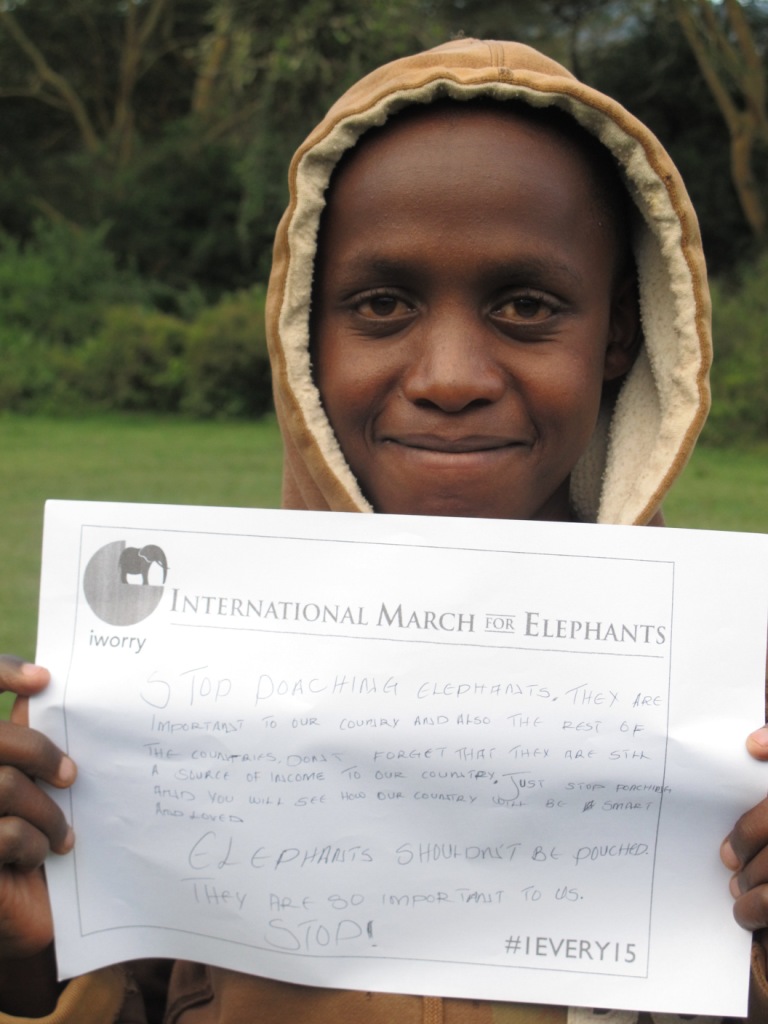 INTERNATIONAL MARCH FOR ELEPHANTS
iworry
STOP POACHING ELEPHANTS. THEY ARE
IMPORTANT TO OUR COUNTRY AND ALSO THE REST OF
THE COUNTRIES, DON'T FORGET THAT THEY ARE STILL
A SOURCE OF INCOME TO OUR COUNTRY. JUST STOP POACHING
AND YOU WILL SEE HOW OUR COUNTRY WILL BE SMART
AND LOVED
ELEPHANTS SHOULDN'T BE POUCHED.
THEY ARE SO IMPORTANT TO US.
STOP!
#IEVERY15